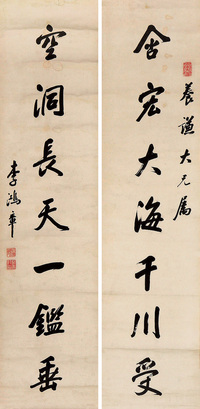 養謙大兄属
含宏大海千川受
空洞長天一鑑垂
李鴻章